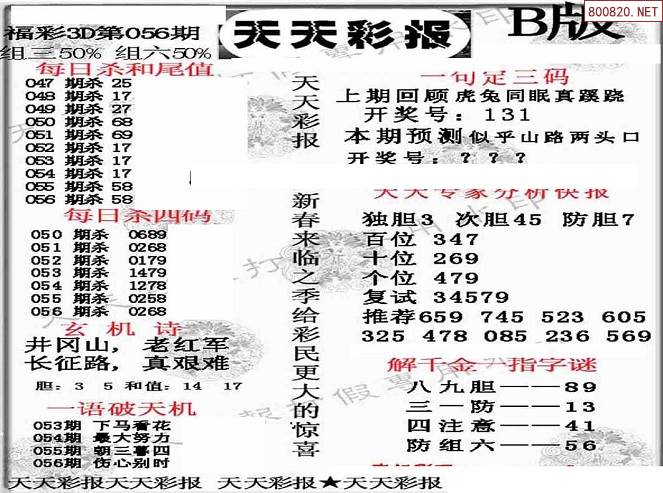 福彩3D第056期
组三50% 组六50%
天天彩报
B版
800820.NET
每日杀和尾值
047 期杀 25
048 期杀 17
049 期杀 27
050 期杀 68
051 期杀 69
052 期杀 17
053 期杀 17
054 期杀 17
055 期杀 58
056 期杀 58
每日杀四码
050 期杀 0689
051 期杀 0268
052 期杀 0179
053 期杀 1479
054 期杀 1278
055 期杀 0258
056 期杀 0268
玄机诗
井冈山，老红军
长征路，真艰难
胆：3 5 和值：14 17
一语破天机
053期 下马看花
054期 最大努力
055期 朝三暮四
056期 伤心别时
天天彩报
新春来临之季给彩民更大的惊喜
一句定三码
上期回顾虎兔同眠真蹊跷
开奖号：131
本期预测似乎山路两头口
开奖号：？？？
天天专家分析快报
独胆3 次胆45 防胆7
百位 347
十位 269
个位 479
复试 34579
推荐659 745 523 605
325 478 085 236 569
解千金一指字谜
八九胆——89
三一防——13
四注意——41
防组六——56
天天彩报天天彩报 天天彩报★天天彩报